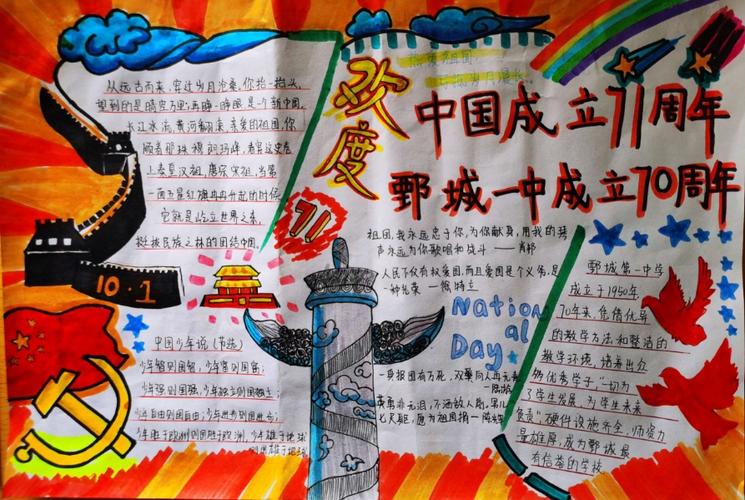 从远古而来，穿过岁月沧桑，你抬一抬头
望到的是晴空万里；再睁一睁眼是一个新中国。
长江冰流，黄河翻滚，亲爱的祖国，你
顺着那珠穆朗玛峰，看
上秦夏汉祖，唐尽宋祖，当第
一面五星红旗冉冉升起的时候
它就是屹立世界之泰，
挺拔民族之林的团结中国。
10·1
中国少年说（节选）
少年智则国智；少年富则国富；
少年强则国强，少年独立则国独立；
少年自由则国自由；少年进步则国进步；
少年胜于欧洲则国胜于欧洲，少年雄于地球
则国雄于地球
欢度
71
中国成立71周年
鄄城一中成立70周年
祖国，我永远忠于你，为你献身，用我的琴
声永远为你歌唱和战斗 ——肖邦
人民不仅有权爱国，而且爱国是个义务，是
一种光荣 —
National
Day
一身报国有万死，双鬓向人再无青
—陆游
黄，不洒敌人前，男儿
七尺躯，愿为祖国捐 —陈辉
鄄城第一中学
成立于1950年，
70年来，凭借优异
的教学方法和整洁的
教学环境，培养出众
多优秀学子“一切为
了学生发展，为学生未来
负责”硬件设施齐全，师资力
量雄厚，成为鄄城最
有信誉的学校